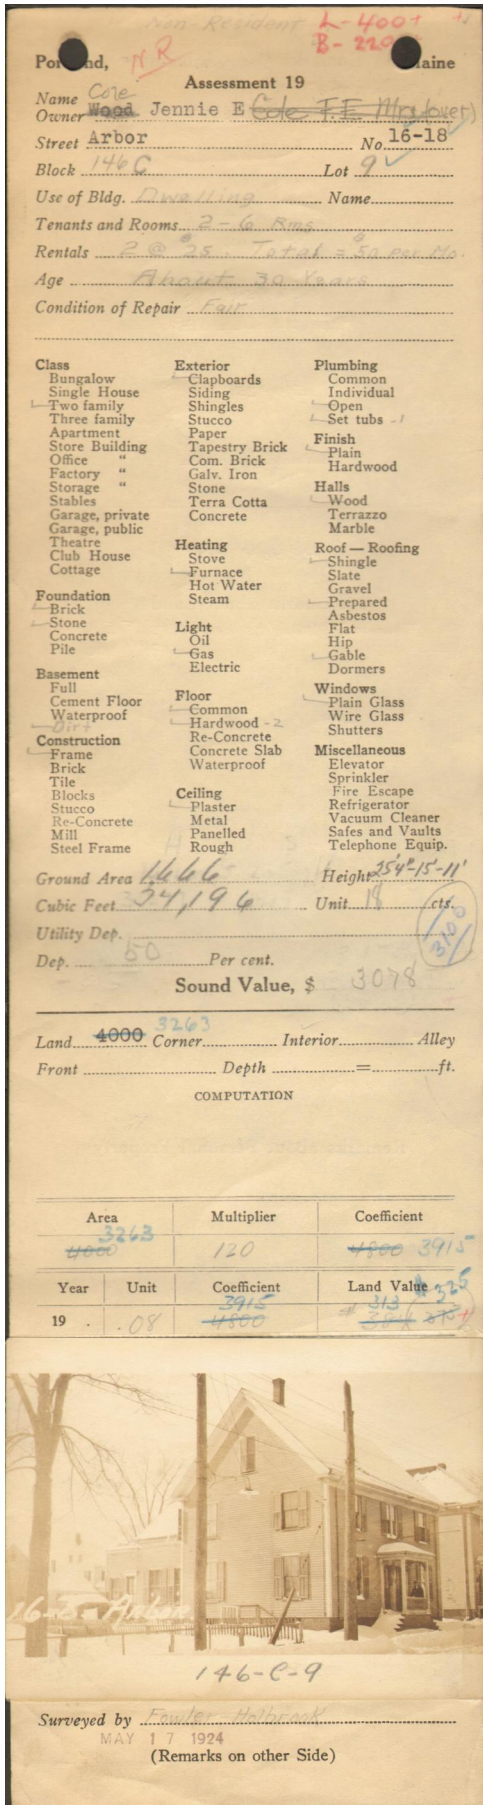 Non-Resident L-400+
B-220
Portland, NR Maine
Assessment 19
Name Cole
Owner Wood Jennie E Cole F.E. Mrs (over)
Street Arbor No 16-18
Block 146 C Lot 9
Use of Bldg. Dwelling Name
Tenants and Rooms 2 - 6 Rms
Rentals 2 @ $25. Total = $50 per Mo.
Age About 30 Years
Condition of Repair Fair
Class
Bungalow
Single House
Two family
Three family
Apartment
Store Building
Office "
Factory "
Storage "
Stables
Garage, private
Garage, public
Theatre
Club House
Cottage
Foundation
Brick
Stone
Concrete
Pile
Basement
Full
Cement Floor
Waterproof
Dirt
Construction
Frame
Brick
Tile
Blocks
Stucco
Re-Concrete
Mill
Steel Frame
Exterior
Clapboards
Siding
Shingles
Stucco
Paper
Tapestry Brick
Com. Brick
Galv. Iron
Stone
Terra Cotta
Concrete
Heating
Stove
Furnace
Hot Water
Steam
Light
Oil
Gas
Electric
Floor
Common
Hardwood - 2
Re-Concrete
Concrete Slab
Waterproof
Ceiling
Plaster
Metal
Panelled
Rough
Plumbing
Common
Individual
Open
Set tubs - 1
Finish
Plain
Hardwood
Halls
Wood
Terrazzo
Marble
Roof — Roofing
Shingle
Slate
Gravel
Prepared
Asbestos
Flat
Hip
Gable
Dormers
Windows
Plain Glass
Wire Glass
Shutters
Miscellaneous
Elevator
Sprinkler
Fire Escape
Refrigerator
Vacuum Cleaner
Safes and Vaults
Telephone Equip.
Ground Area 1666 Height 25'4"-15'-11'
Cubic Feet 34,196 Unit 18 cts.
Utility Dep. 3100
Dep. 50 Per cent.
Sound Value, $ 3078
3263
Land 4000 Corner Interior Alley
Front Depth = ft.
COMPUTATION
Area Multiplier Coefficient
3263
4000 120 4800 3915
Year Unit Coefficient Land Value $325
3915 313
19 . .08 4800 384 375
16-8- Arbor
146-C-9
Surveyed by Fowler-Holbrook
MAY 17 1924
(Remarks on other Side)